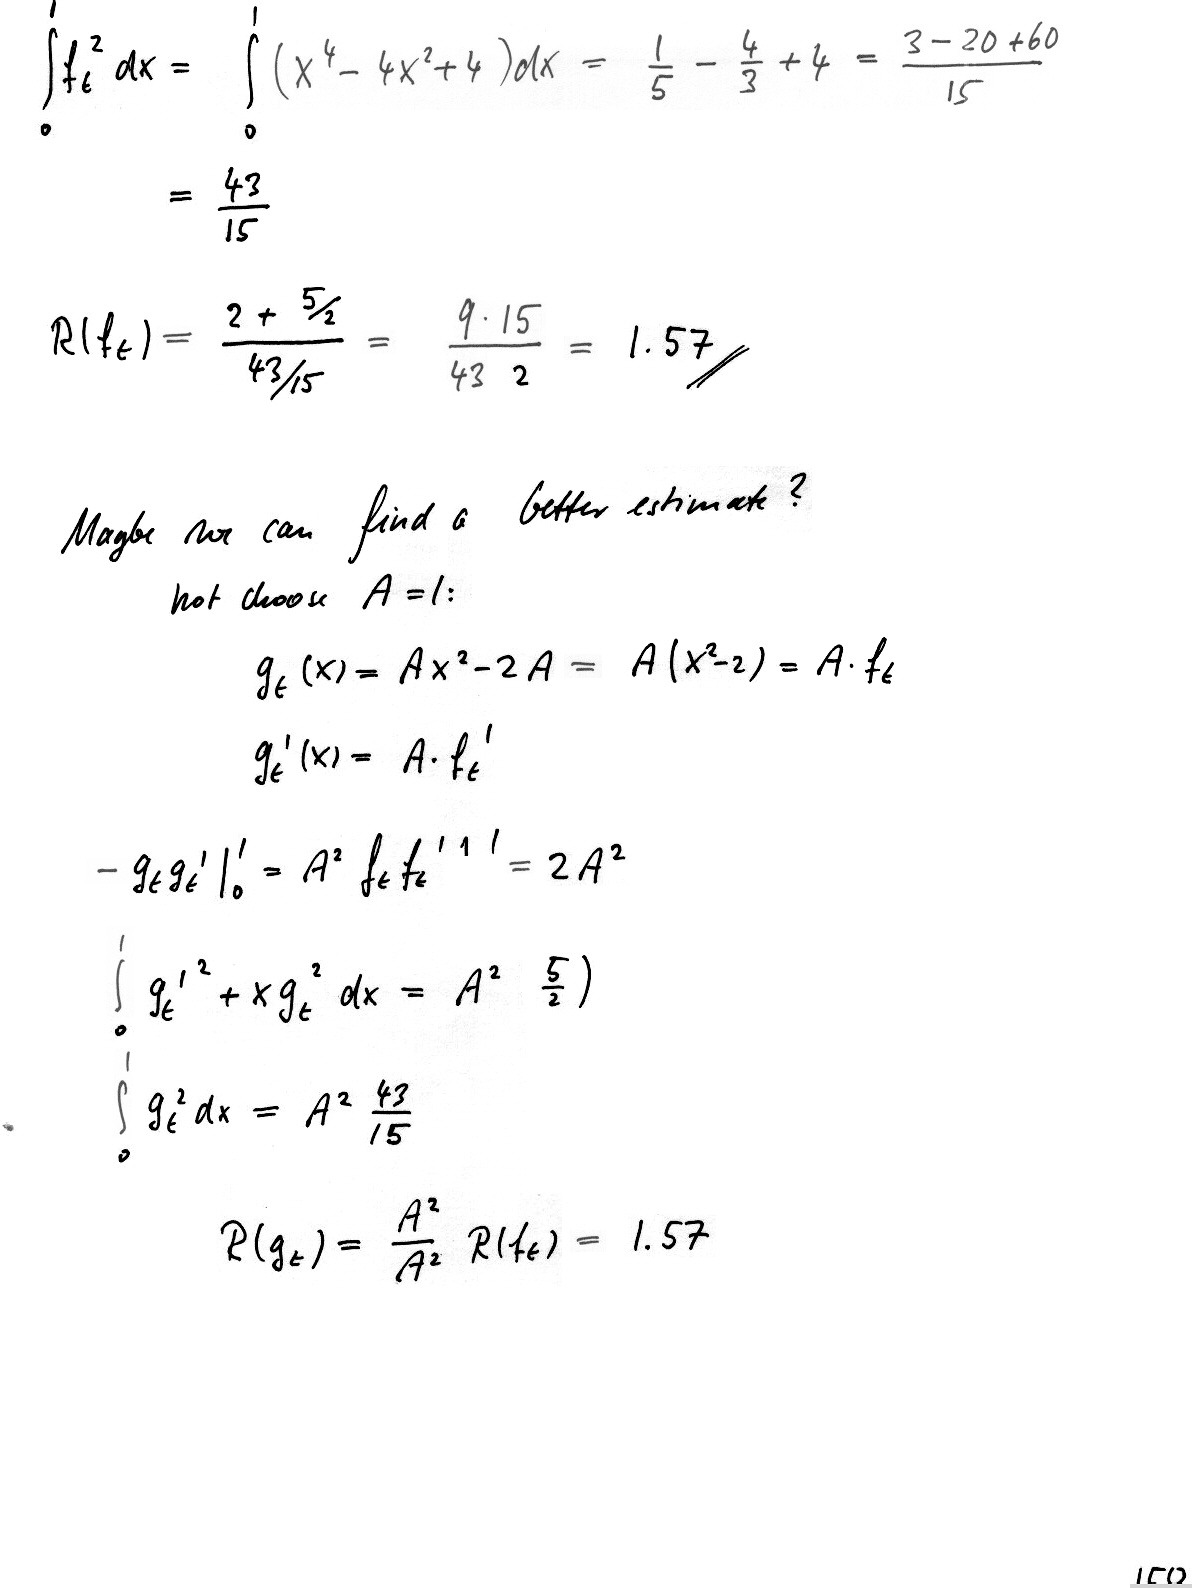 ∫₀¹ fₜ² dx = ∫₀¹ (x⁴ - 4x² + 4) dx = 1/5 - 4/3 + 4 = (3 - 20 + 60)/15
= 43/15
R(fₜ) = (2 + 5/2)/(43/15) = (9 · 15)/(43 2) = 1.57
Maybe we can find a better estimate?
not choose A = 1:
gₜ(x) = Ax² - 2A = A(x² - 2) = A · fₜ
gₜ'(x) = A · fₜ'
- gₜgₜ'|₀¹ = A² fₜfₜ' ' ' = 2A²
∫₀¹ gₜ'² + xgₜ² dx = A² 5/2)
∫₀¹ gₜ² dx = A² 43/15
R(gₜ) = A²/A² R(fₜ) = 1.57